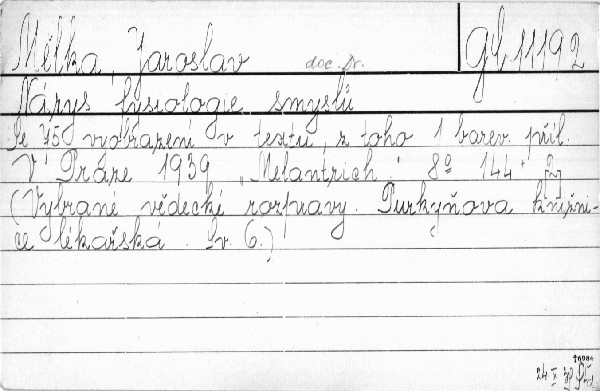 Mělka, Jaroslav doc. Dr. Gf 11192
Nárys fysiologie smyslů
Se 45 vyobrazení v textu, z toho 1 barev. příl.
V Praze 1939 „Melantrich." 8° 144
(Vybrané vědecké rozpravy. Purkyňova knižni-
ce lékařská. Sv. 6.)
24 X 39